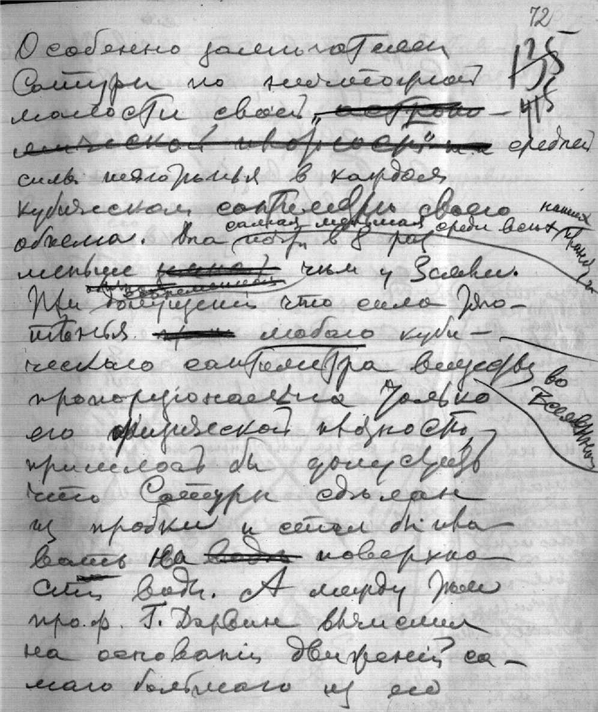 72
135
415
Особенно замечателен
Сатурн по
малости своей „астроно-
мической средней
силы тяготенья в каждом
кубическом сантиметре своего
объема. Она почти в 8 раз
самая меньшая среди всех наших планет
меньше чем у Земли.
При современном
допущении что сила тяго-
тенья любого куби-
ческаго сантиметра вещества во Вселенной
пропорціональна только
его физической плотности,
пришлось бы допустить
что Сатурн сделан
из пробки и стал бы пла
вать на водѣ поверхно
сти воды. А между тем
проф. Г. Дарвин вычислил
на основаніи движеній са-
маго большаго из его